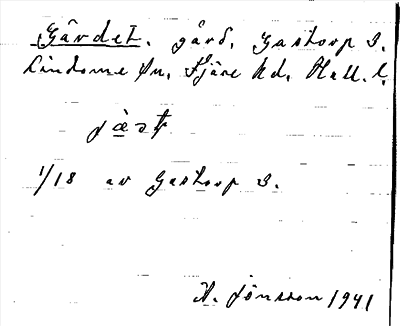 Gärdet. gård, Gastorp 3.
Lindome sn, Fjäre hd, Hall. l.
1/18 av Gastorp 3.
A. Jönsson 1941